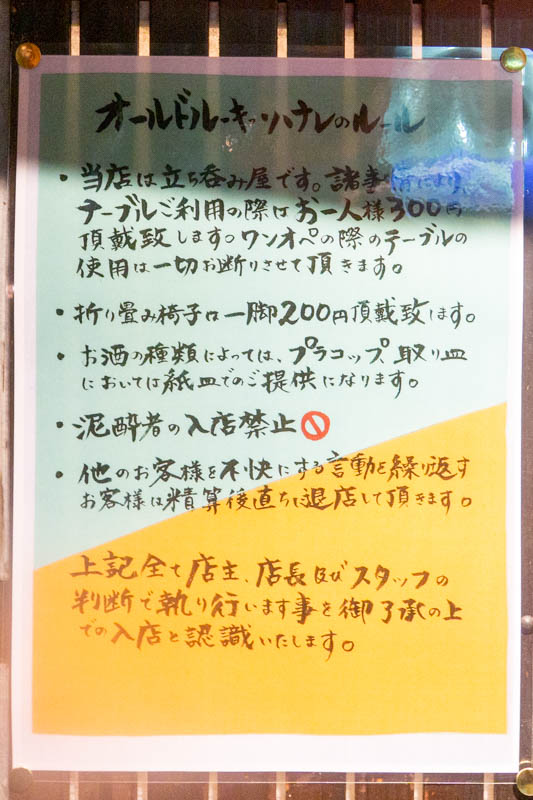 オールドルーキーハナレのルール
・当店は立ち呑み屋です。諸事情により
テーブルご利用の際はお一人様300円
頂戴致します。ワンオペの際のテーブルの
使用は一切お断りさせて頂きます。
・折り畳み椅子は一脚200円頂戴致します。
・お酒の種類によっては、プラコップ取り皿
においては紙皿でのご提供になります。
・泥酔者の入店禁止
・他のお客様を不快にする言動を繰り返す
お客様は精算後直ちに退店して頂きます。
上記全て店主、店長及びスタッフの
判断で執り行います事を御了承の上
での入店と認識いたします。